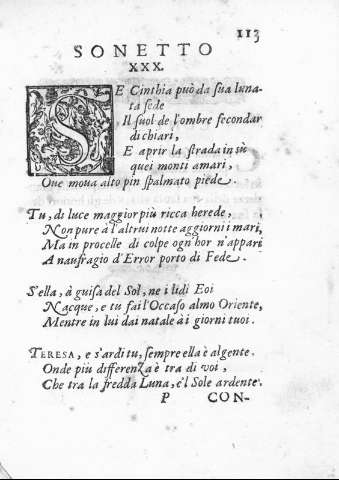 113
SONETTO
XXX.
SE Cinthia può da sua luna-
ta sede
Il suol de l'ombre secondar
di chiari,
E aprir la strada in sù
quei monti amari,
Oue moua alto pin spalmato piede.
Tu, di luce maggior più ricca herede,
Non pure à l'altrui notte aggiorni i mari,
Ma in procelle di colpe ogn'hor n'appari
A naufragio d'Error porto di Fede.
S'ella, à guisa del Sol, ne i lidi Eoi
Nacque, e tu fai l'Occaso almo Oriente,
Mentre in lui dai natale à i giorni tuoi.
TERESA, e s'ardi tu, sempre ella è algente.
Onde più differenza è tra di voi,
Che tra la fredda Luna, e'l Sole ardente.
P CON-